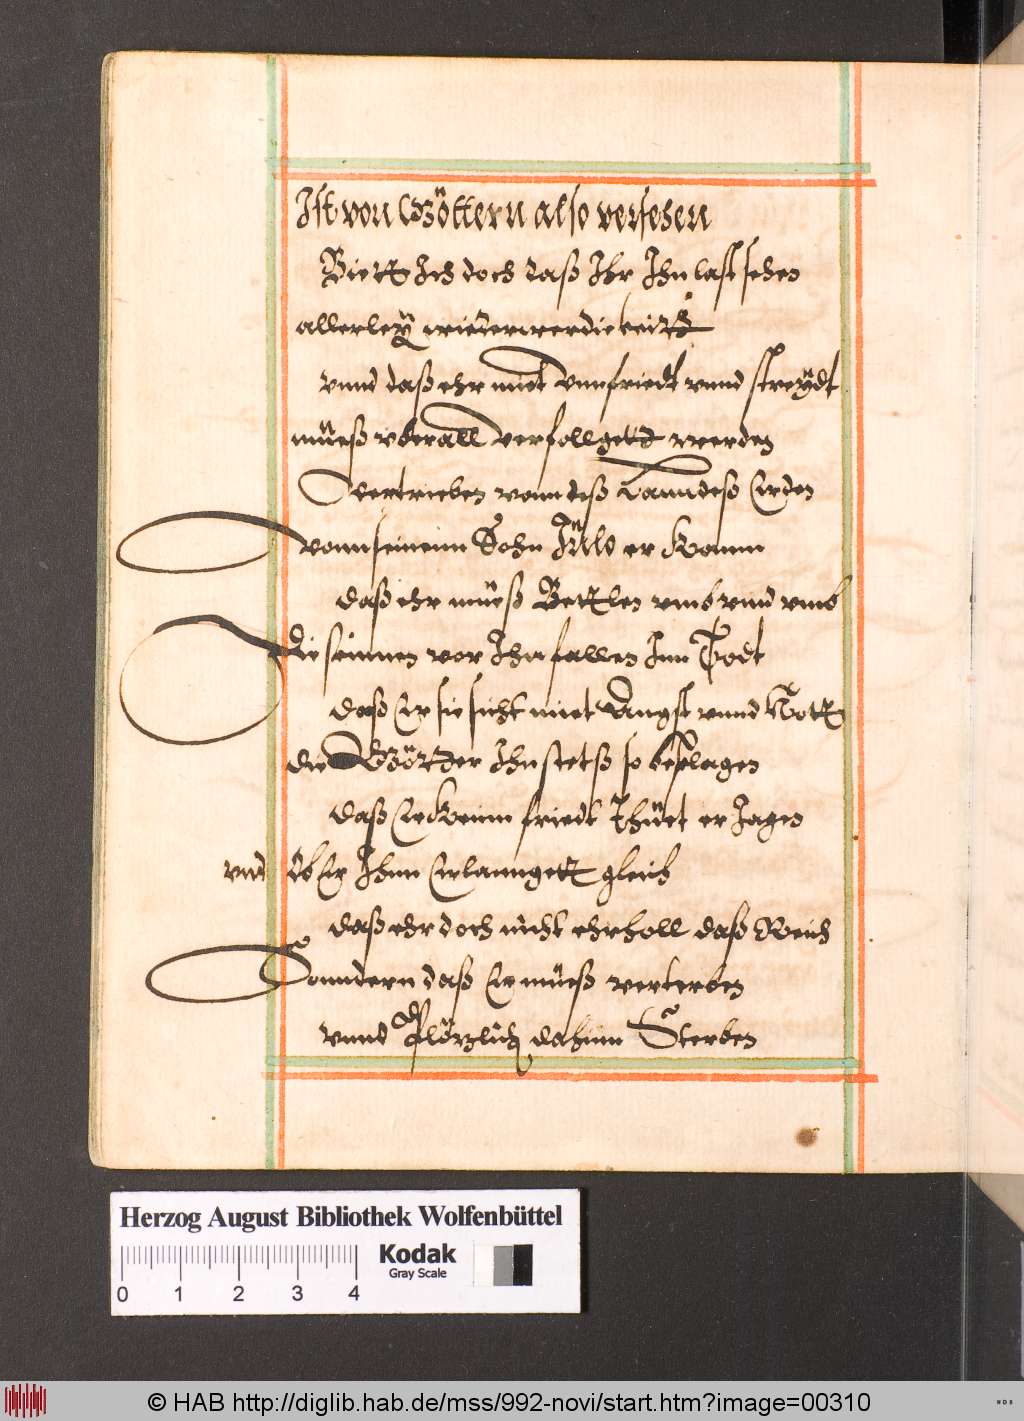 Ist von Göttern also versehen
Biett Ich doch daß Ihr Ihn last sehen
allerleÿ wiederwerdickeitt
vnnd daß ehr miet vnnfriedt vnnd streÿdt
müeß vberall verfollgett werden
vertrieben vonn deß Lanndeß Erden
vonn seinenn Sohn Jülo er komm
daß ehr müeß Bettlen vmb vnnd vmb
die seinnen vor Ihn fallen Inn Todt
daß Er sie sicht miet Angst vnnd Nott
die Götter Ihn stetß so beslagen
daß Er keinn friedt Thüet er Jagen
vnd ob Er Ihnn Erlannget gleich
daß ehr doch nicht ehrholl daß Reich
Sonndern daß Er müeß verterben
vnnd Plözlich dahinn Sterben
Herzog August Bibliothek Wolfenbüttel
Kodak
Gray Scale
0 1 2 3 4
© HAB http://diglib.hab.de/mss/992-novi/start.htm?image=00310